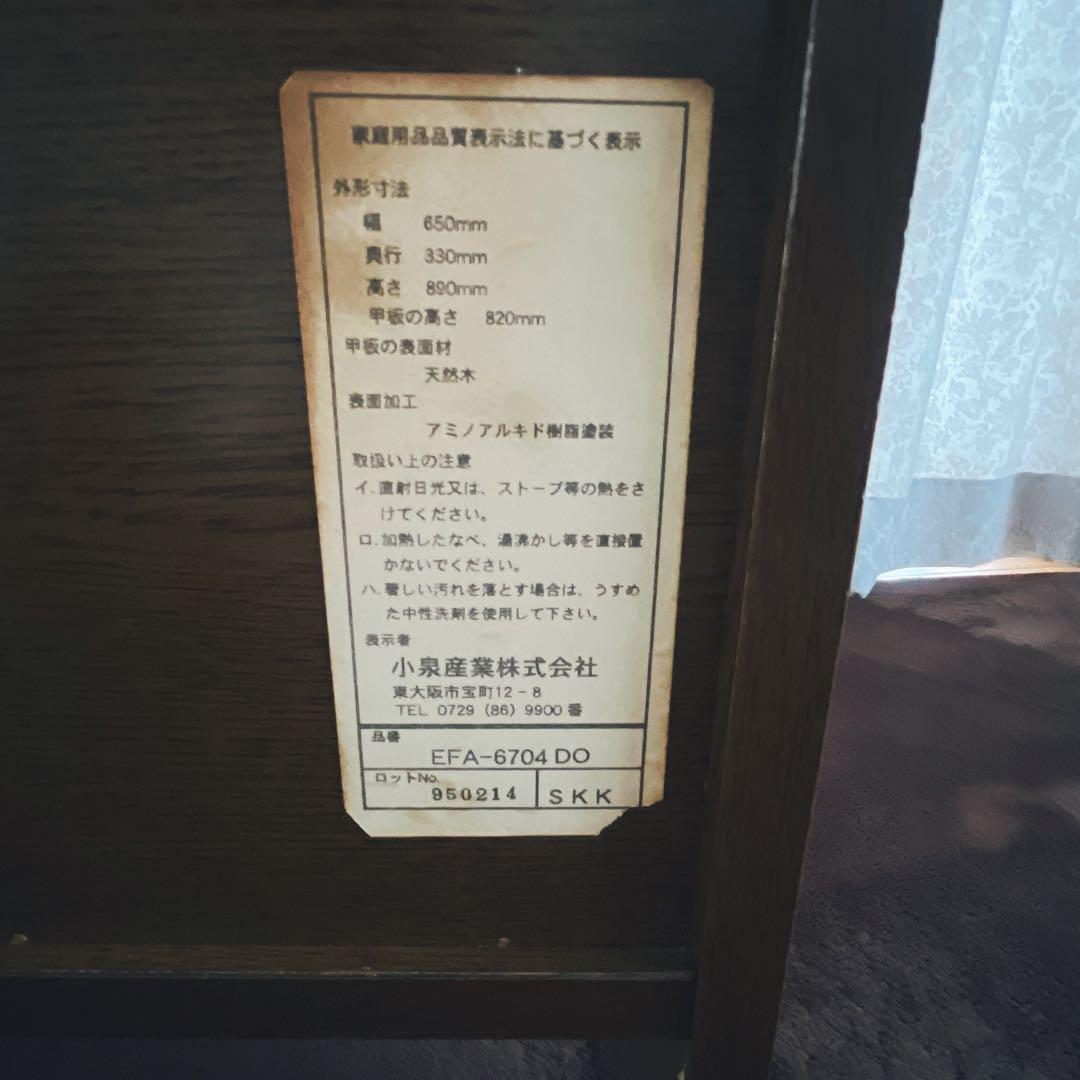 家庭用品品質表示法に基づく表示
外形寸法
幅 650mm
奥行 330mm
高さ 890mm
甲板の高さ 820mm
甲板の表面材
天然木
表面加工
アミノアルキド樹脂塗装
取扱い上の注意
イ.直射日光又は、ストーブ等の熱をさ
けてください。
ロ.加熱したなべ、湯沸かし等を直接置
かないでください。
ハ.著しい汚れを落とす場合は、うすめ
た中性洗剤を使用して下さい。
表示者
小泉産業株式会社
東大阪市宝町12-8
TEL 0729 (86) 9900番
品番
EFA-6704 DO
ロットNo.
950214 SKK